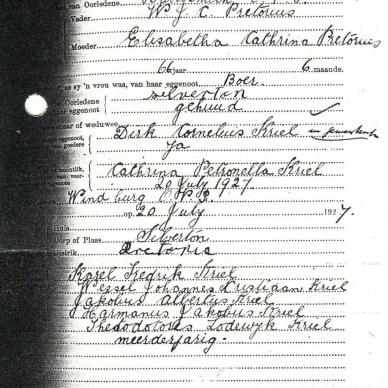 van Oorledene
Vader W. J. C. Pretorius
Moeder Elisabetha Cathrina Pretorius
66 jaar 6 maande.
as sy 'n vrou was, van haar eggenoot Boer
Oorledene Silverton
haar eggenoot gehuud
of weduwee
Dirk Cornelius Kriel
Ja
Cathrina Petronella Kriel
20 July 1927
Windburg
op 20 July 1927.
Huis
Dorp of Plaas Silverton
Distrik
Karel Fredrik Kriel
Wessel Johannes Cristiaan Kriel
Jakobus Albertus Kriel
Harmanus Jakobus Kriel
Lodewyk Kriel
meerderjarig.